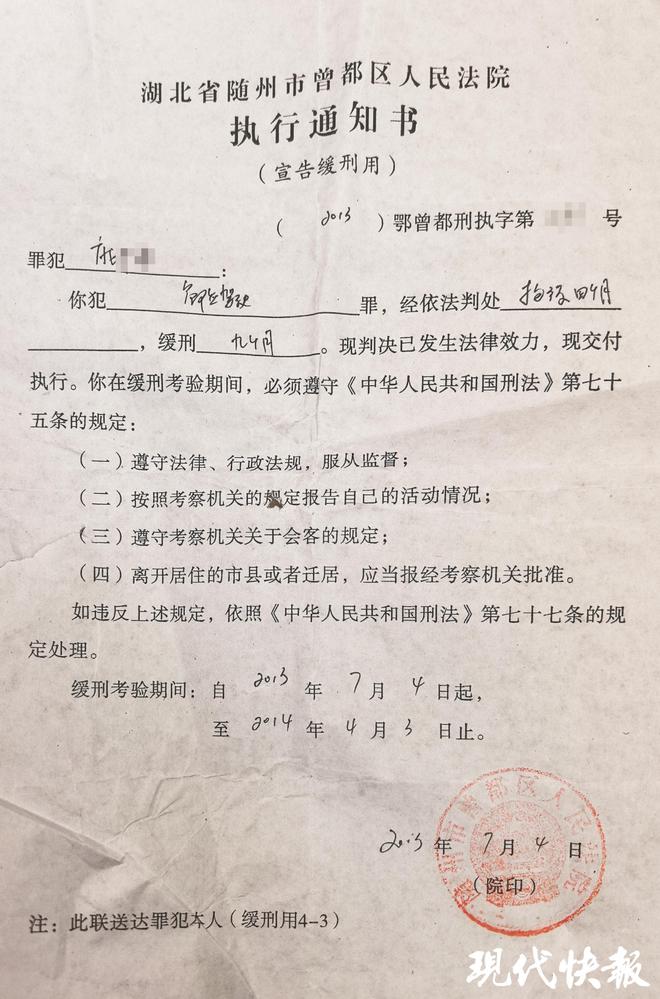 湖北省随州市曾都区人民法院
执行通知书
（宣告缓刑用）
（2013）鄂曾都刑执字第 号
罪犯 ：
你犯 危险驾驶 罪，经依法判处 拘役四个月
，缓刑 九个月 。现判决已发生法律效力，现交付
执行。你在缓刑考验期间，必须遵守《中华人民共和国刑法》第七十
五条的规定：
（一）遵守法律、行政法规，服从监督；
（二）按照考察机关的规定报告自己的活动情况；
（三）遵守考察机关关于会客的规定；
（四）离开居住的市县或者迁居，应当报经考察机关批准。
如违反上述规定，依照《中华人民共和国刑法》第七十七条的规
定处理。
缓刑考验期间：自 2013 年 7 月 4 日起，
至 2014 年 4 月 3 日止。
2013 年 7 月 4 日
（院印）
注：此联送达罪犯本人（缓刑用4-3）
现代快报